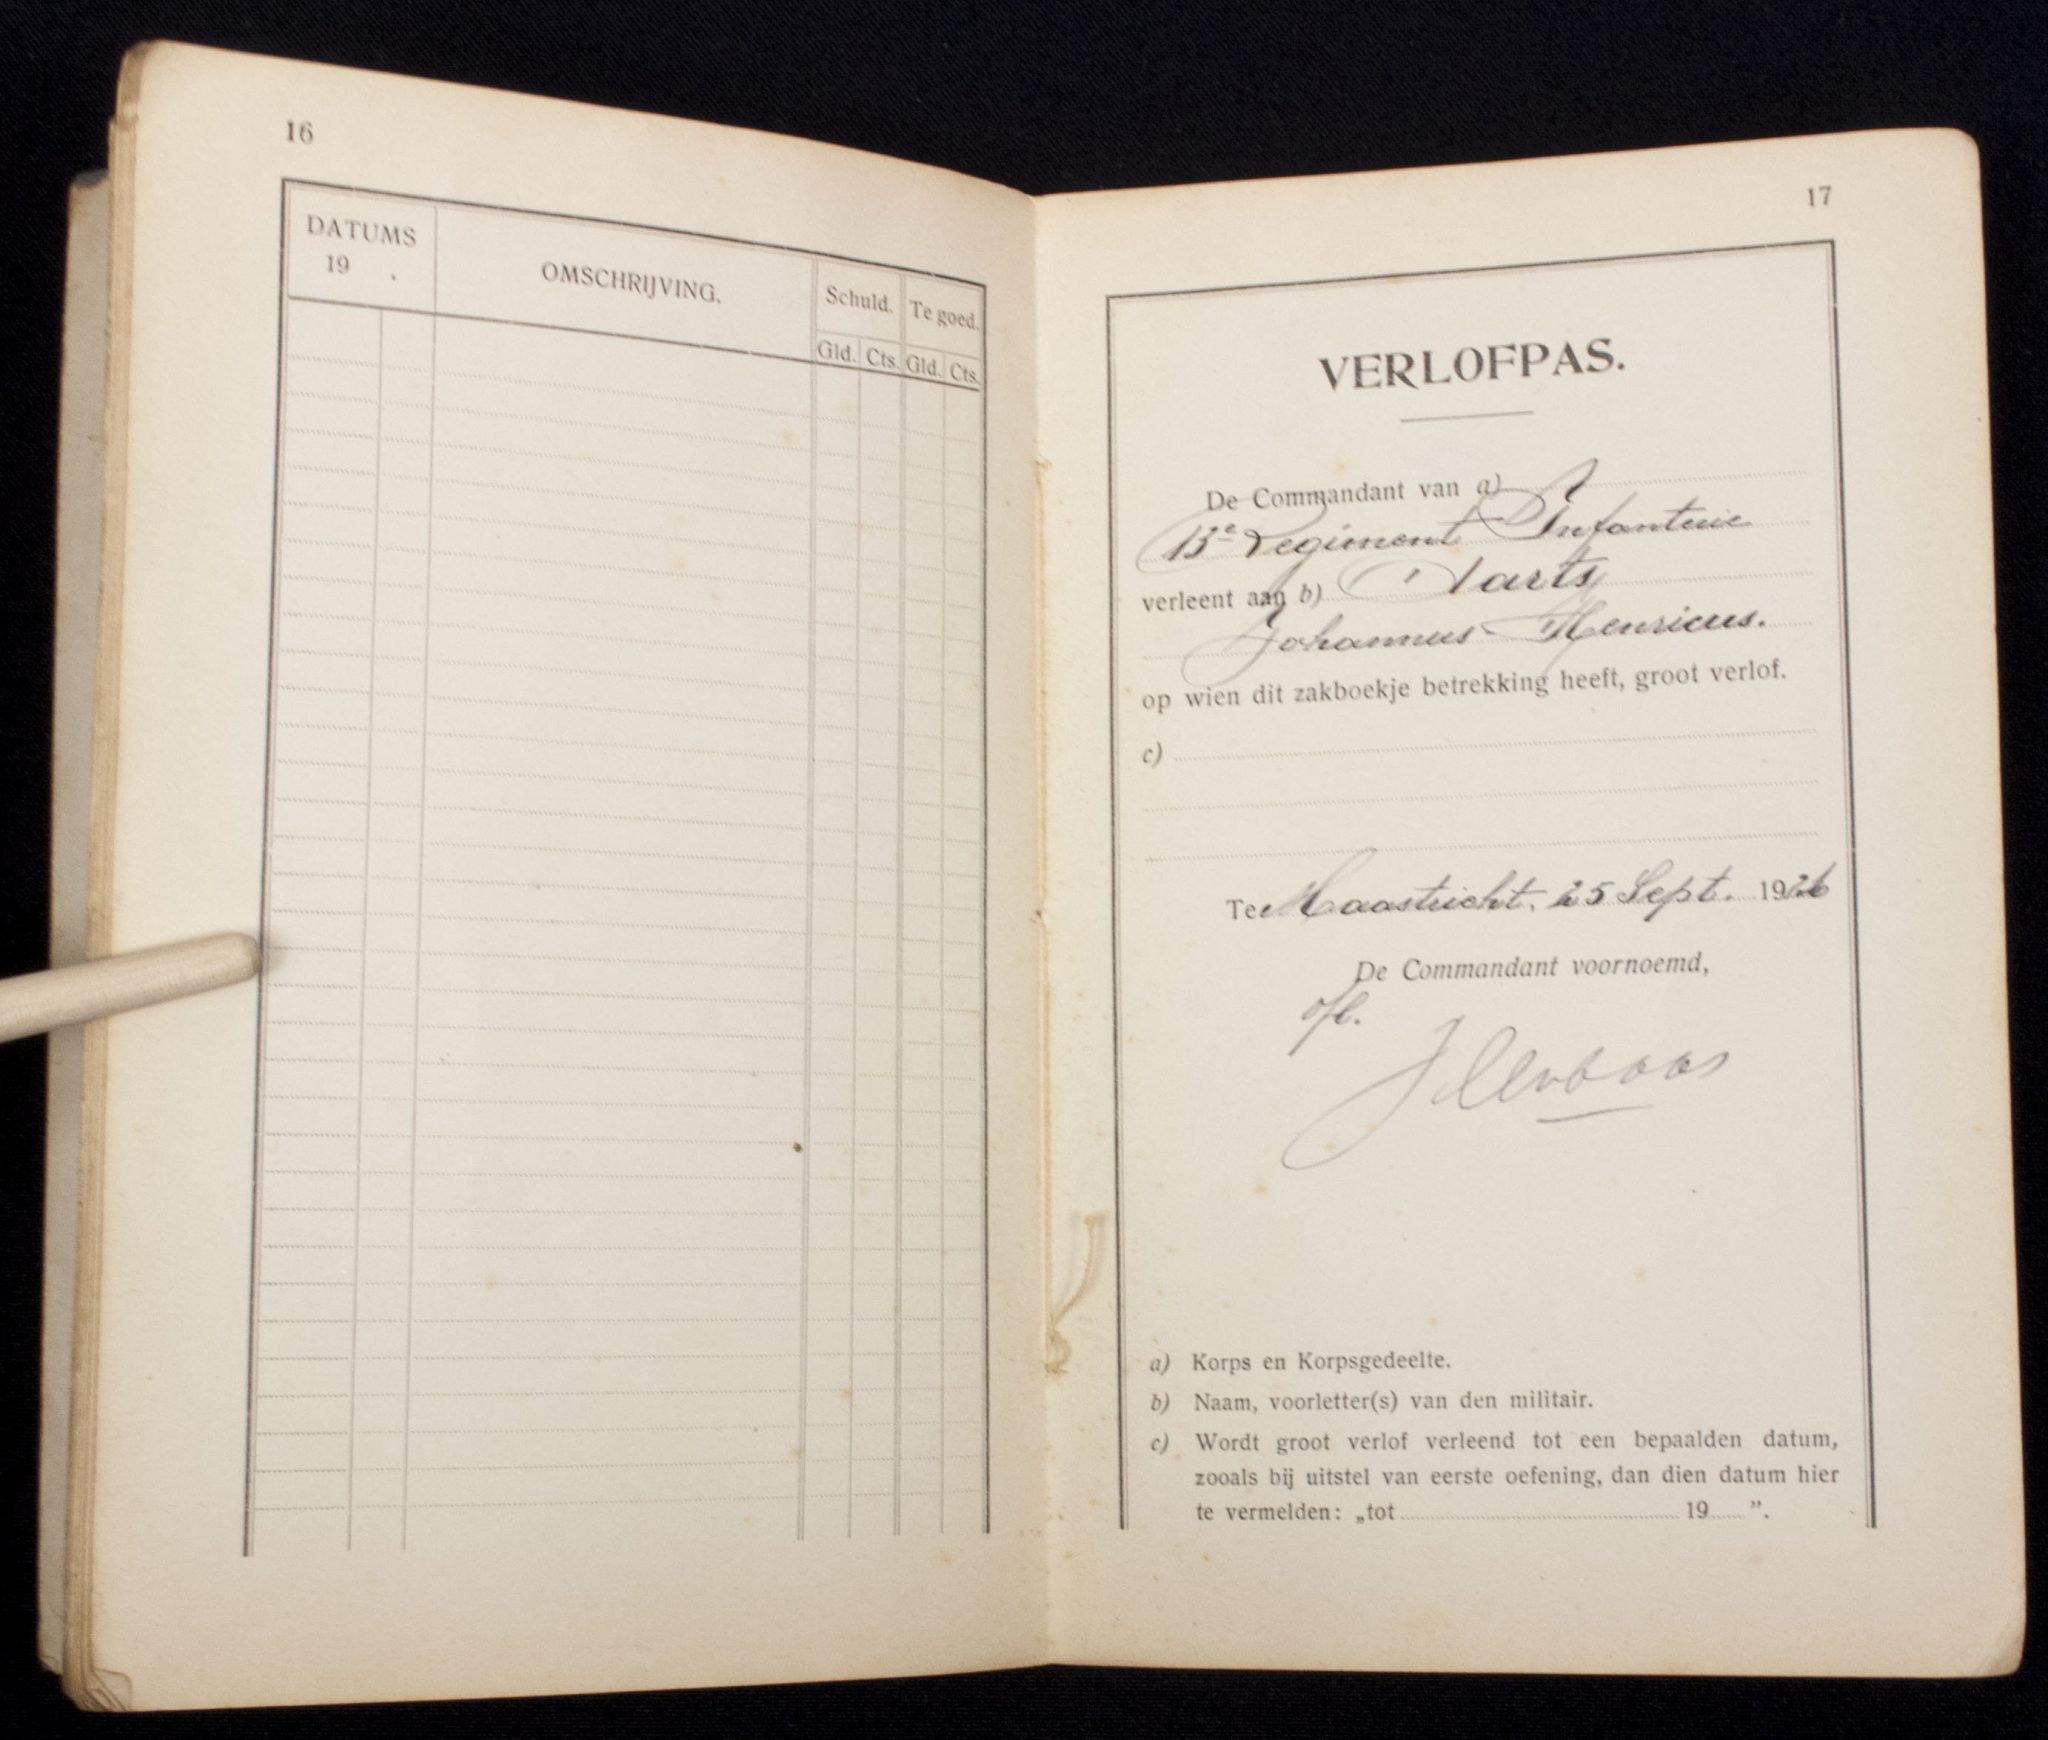 16
DATUMS
19 .
OMSCHRIJVING.
Schuld. Te goed.
Gld. Cts. Gld. Cts.
17
VERLOFPAS.
De Commandant van a)
13e Regiment Infanterie
verleent aan b) Aarts
Johannus Henricus.
op wien dit zakboekje betrekking heeft, groot verlof.
c)
Te Maastricht, 25 Sept. 1926
De Commandant voornoemd,
a) Korps en Korpsgedeelte.
b) Naam, voorletter(s) van den militair.
c) Wordt groot verlof verleend tot een bepaalden datum,
zooals bij uitstel van eerste oefening, dan dien datum hier
te vermelden: „tot 19 ”.